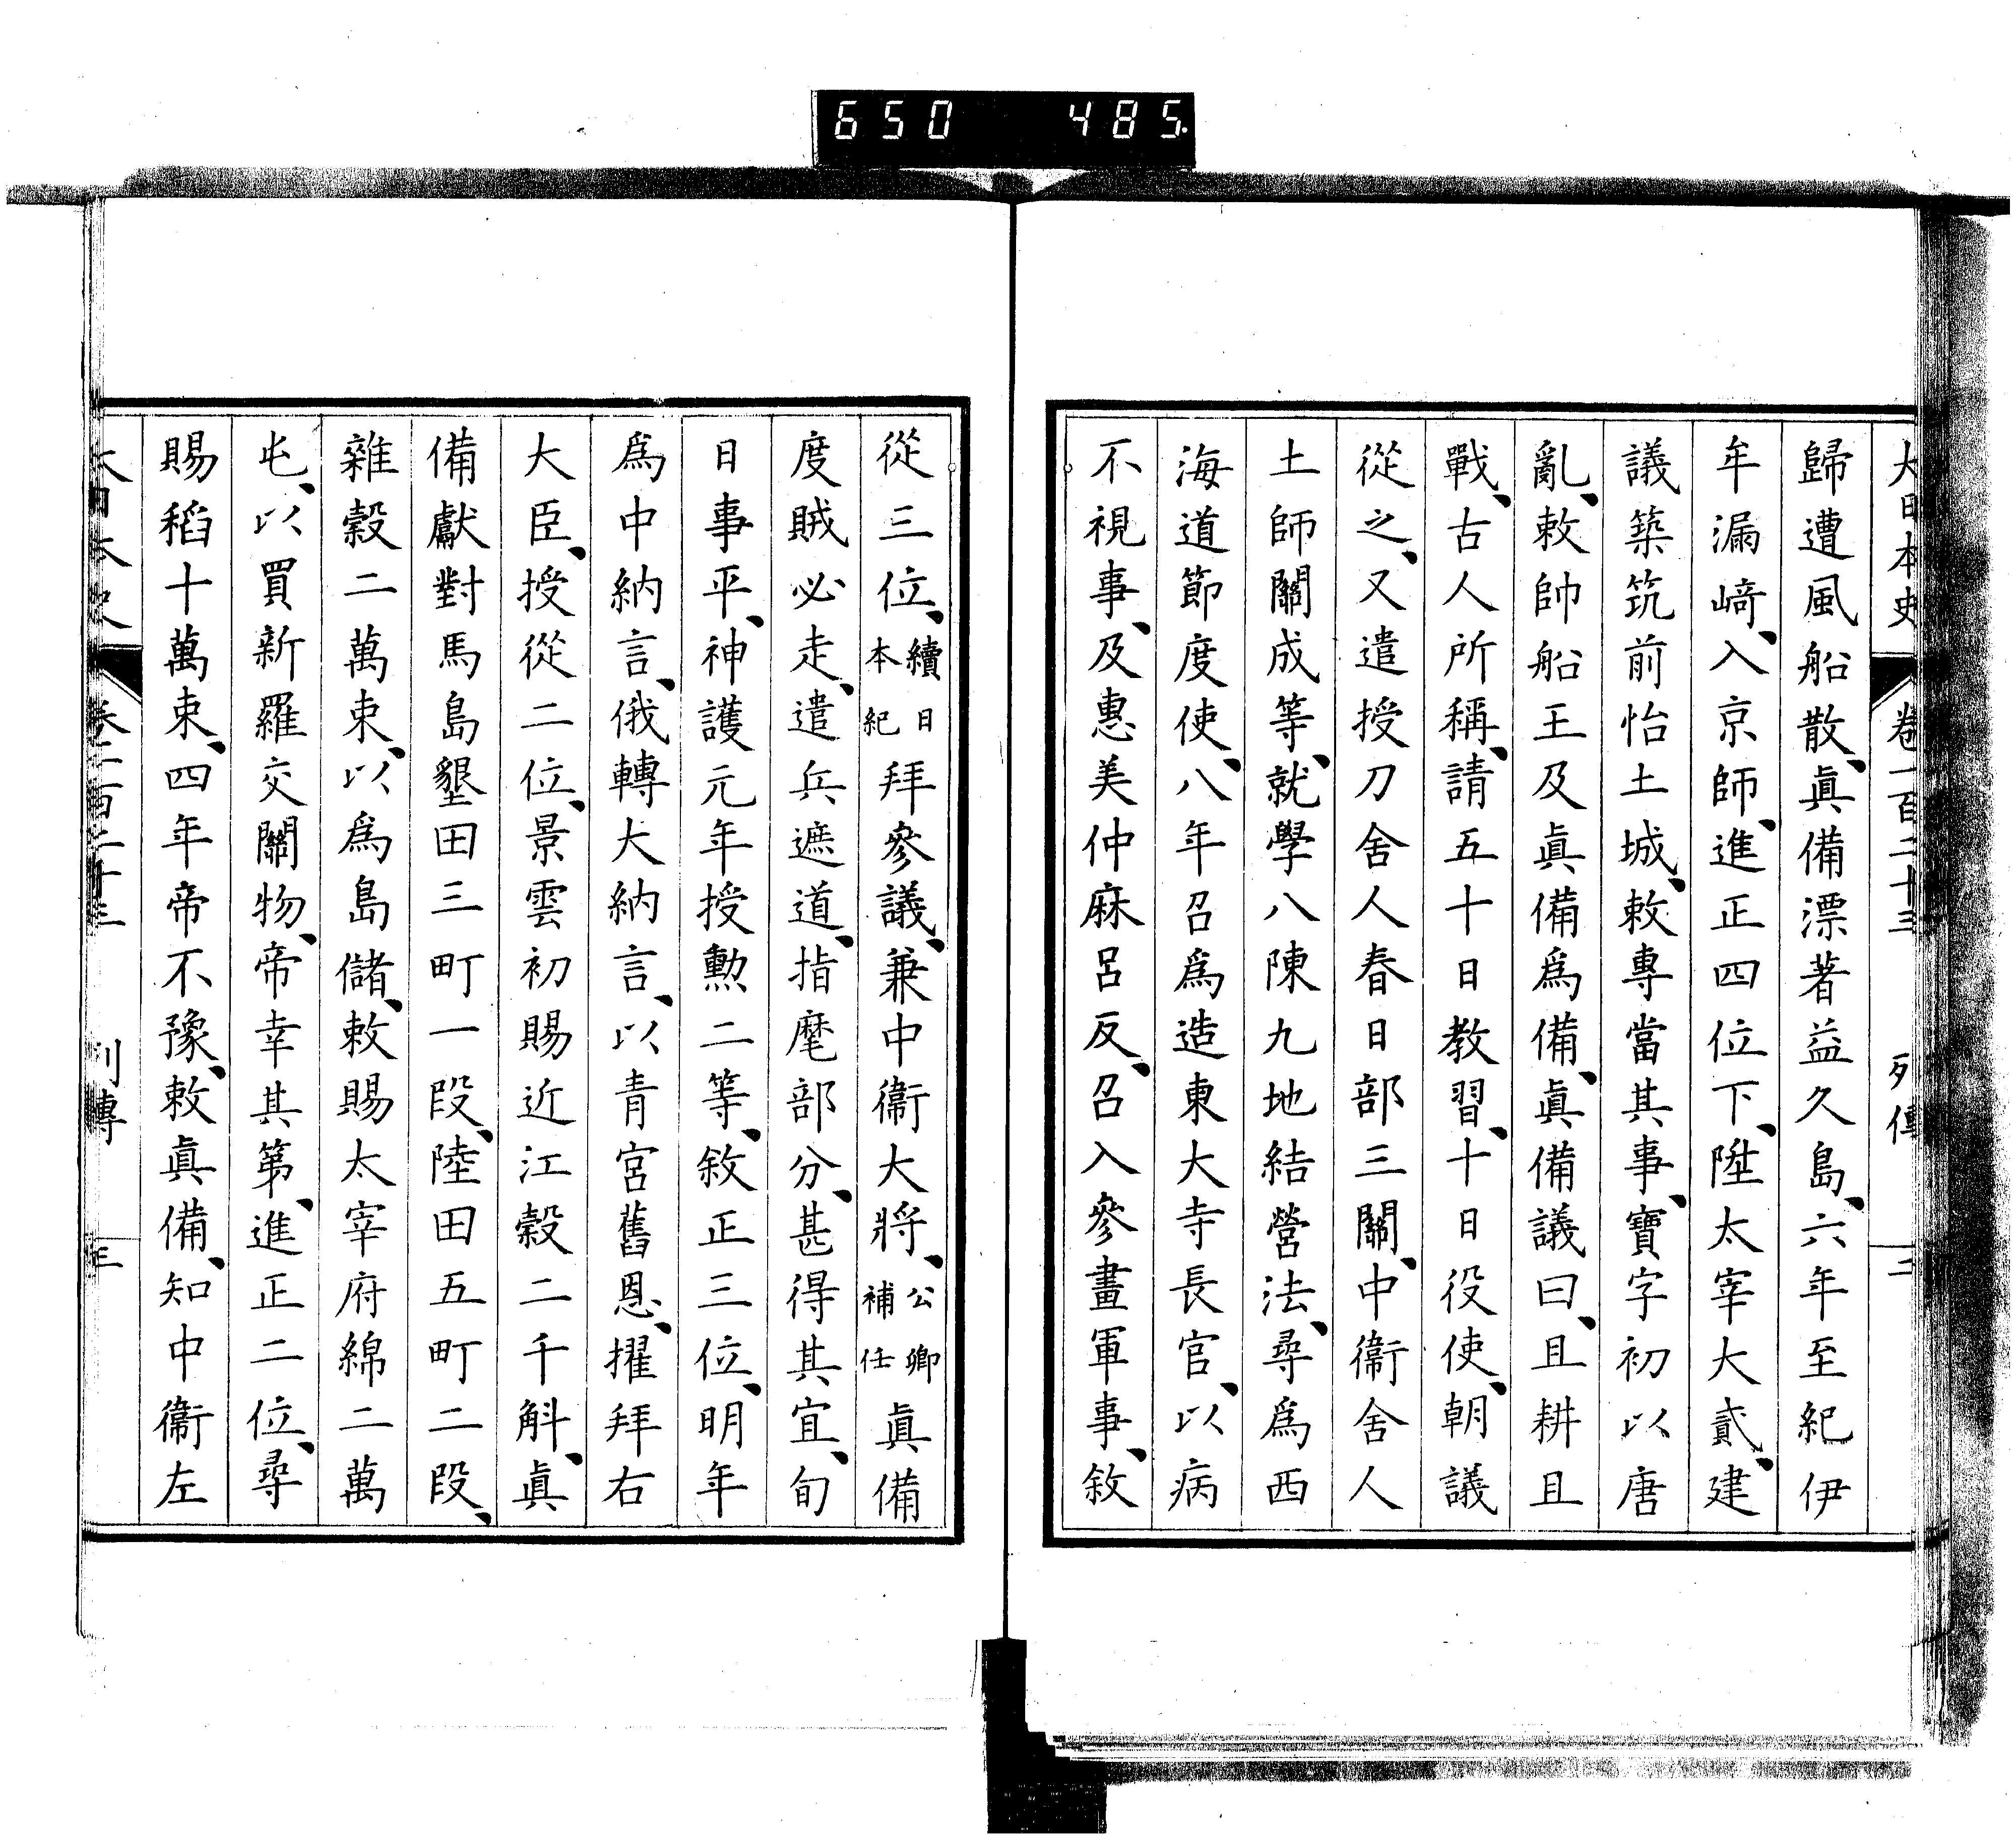 650 485
大日本史 卷一百二十三 列傳 三
歸遭風船散、眞備漂著益久島、六年至紀伊
牟漏﨑、入京師、進正四位下、陞太宰大貳、建
議築筑前怡土城、敕專當其事、寶字初以唐
亂、敕帥船王及眞備爲備、眞備議曰、且耕且
戰、古人所稱、請五十日教習、十日役使、朝議
從之、又遣授刀舍人春日部三關、中衞舍人
土師關成等、就學八陳九地結營法、尋爲西
海道節度使、八年召爲造東大寺長官、以病
不視事、及惠美仲麻呂反、召入參畫軍事、敘
從三位、續日本紀拜參議、兼中衞大將、公卿補任眞備
度賊必走、遣兵遮道、指麾部分、甚得其宜、旬
日事平、神護元年授勲二等、敘正三位、明年
爲中納言、俄轉大納言、以青宮舊恩、擢拜右
大臣、授從二位、景雲初賜近江穀二千斛、眞
備獻對馬島墾田三町一段、陸田五町二段、
雜穀二萬束、以爲島儲、敕賜太宰府綿二萬
屯、以買新羅交關物、帝幸其第、進正二位、尋
賜稻十萬束、四年帝不豫、敕眞備、知中衞左
大日本史 卷一百二十三 列傳 三